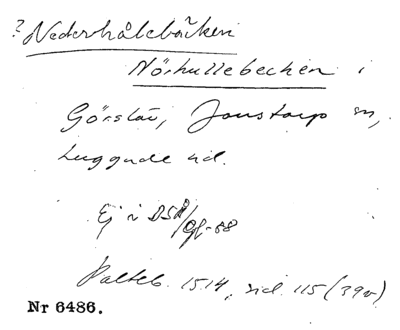 ? Nederhålebäcken
Nörhullebecken i
Görslöv, Jonstorp sn,
Luggude hd.
Ej i DSÅ/Gf-88
Palteb. 1514, sid. 115 (39v)
Nr 6486.